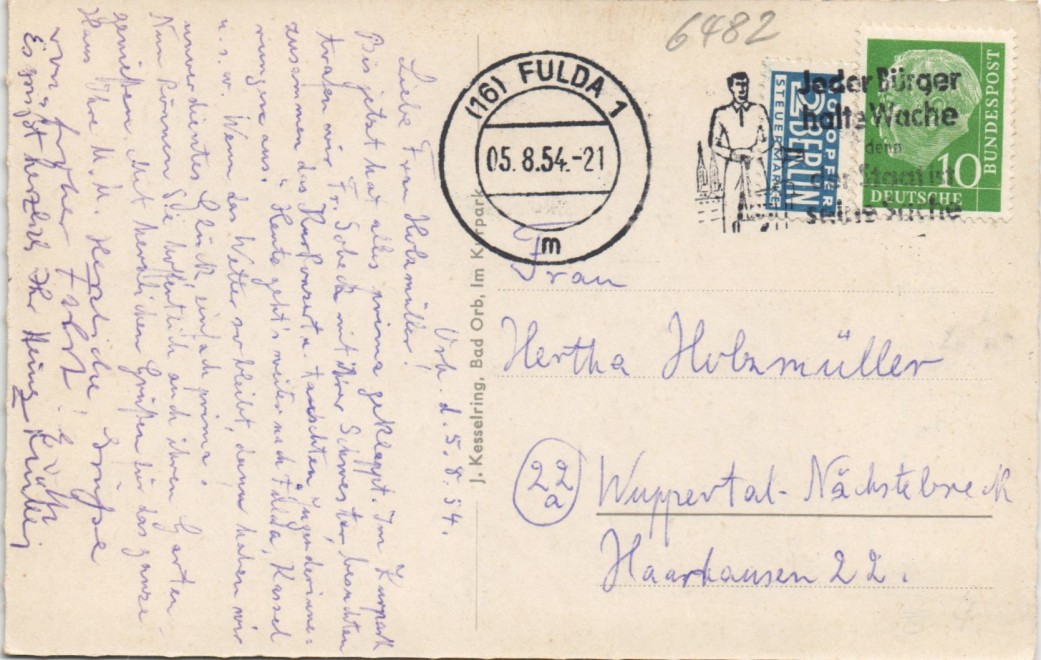 Orb, d. 5.8.54.
Liebe Frau Holzmüller!
Bis jetzt hat alles prima geklappt. Im Kurpark
trafen wir Fr. Scheck mit ihrer Schwester, brachten
zusammen das Kurkonzert u. tauschten Jugenderinne=
rungen aus. Heute geht's weiter nach Fulda, Kassel
u.s.w. Wenn das Wetter so bleibt, dann haben wir
unverdientes Glück, einfach prima!
Nun können Sie hoffentlich auch ihren Garten
genießen. Mit herzlichen Grüßen für das ganze
Haus Ihre M. M. Herzliche Grüße
von
Es grüßt herzlich Ihr Heinz
J. Kesselring, Bad Orb, Im Kurpark
6482
(16) FULDA 1
05.8.54.-21
m
Jeder Bürger
halte Wache
denn
der Staat ist
seine Sache
NOTOPFER
2 BERLIN
STEUERMARKE
10
DEUTSCHE
BUNDESPOST
Frau
Hertha Holzmüller
22a Wuppertal-Nächstebreck
Haarhausen 22.